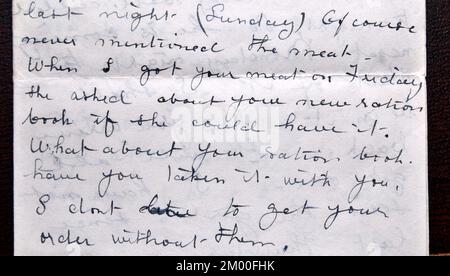 last night (Sunday) Of course
never mentioned the meat.
When I got your meat on Friday
she asked about your new ration
book if she could have it.
What about your ration book.
have you taken it with you,
I dont to get your
order without them.
alamy
Image ID: 2M00FHK
www.alamy.com